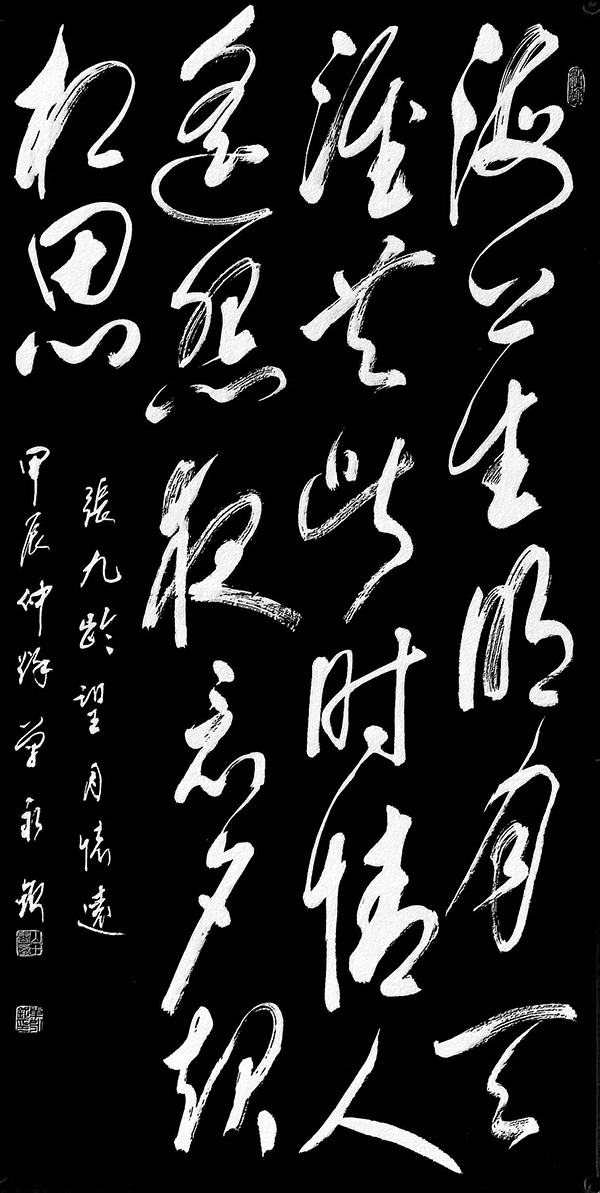 海上生明月天
涯共此时情人
遥怨夜意夕起
相思
張九齡望月懷遠
甲辰仲秋